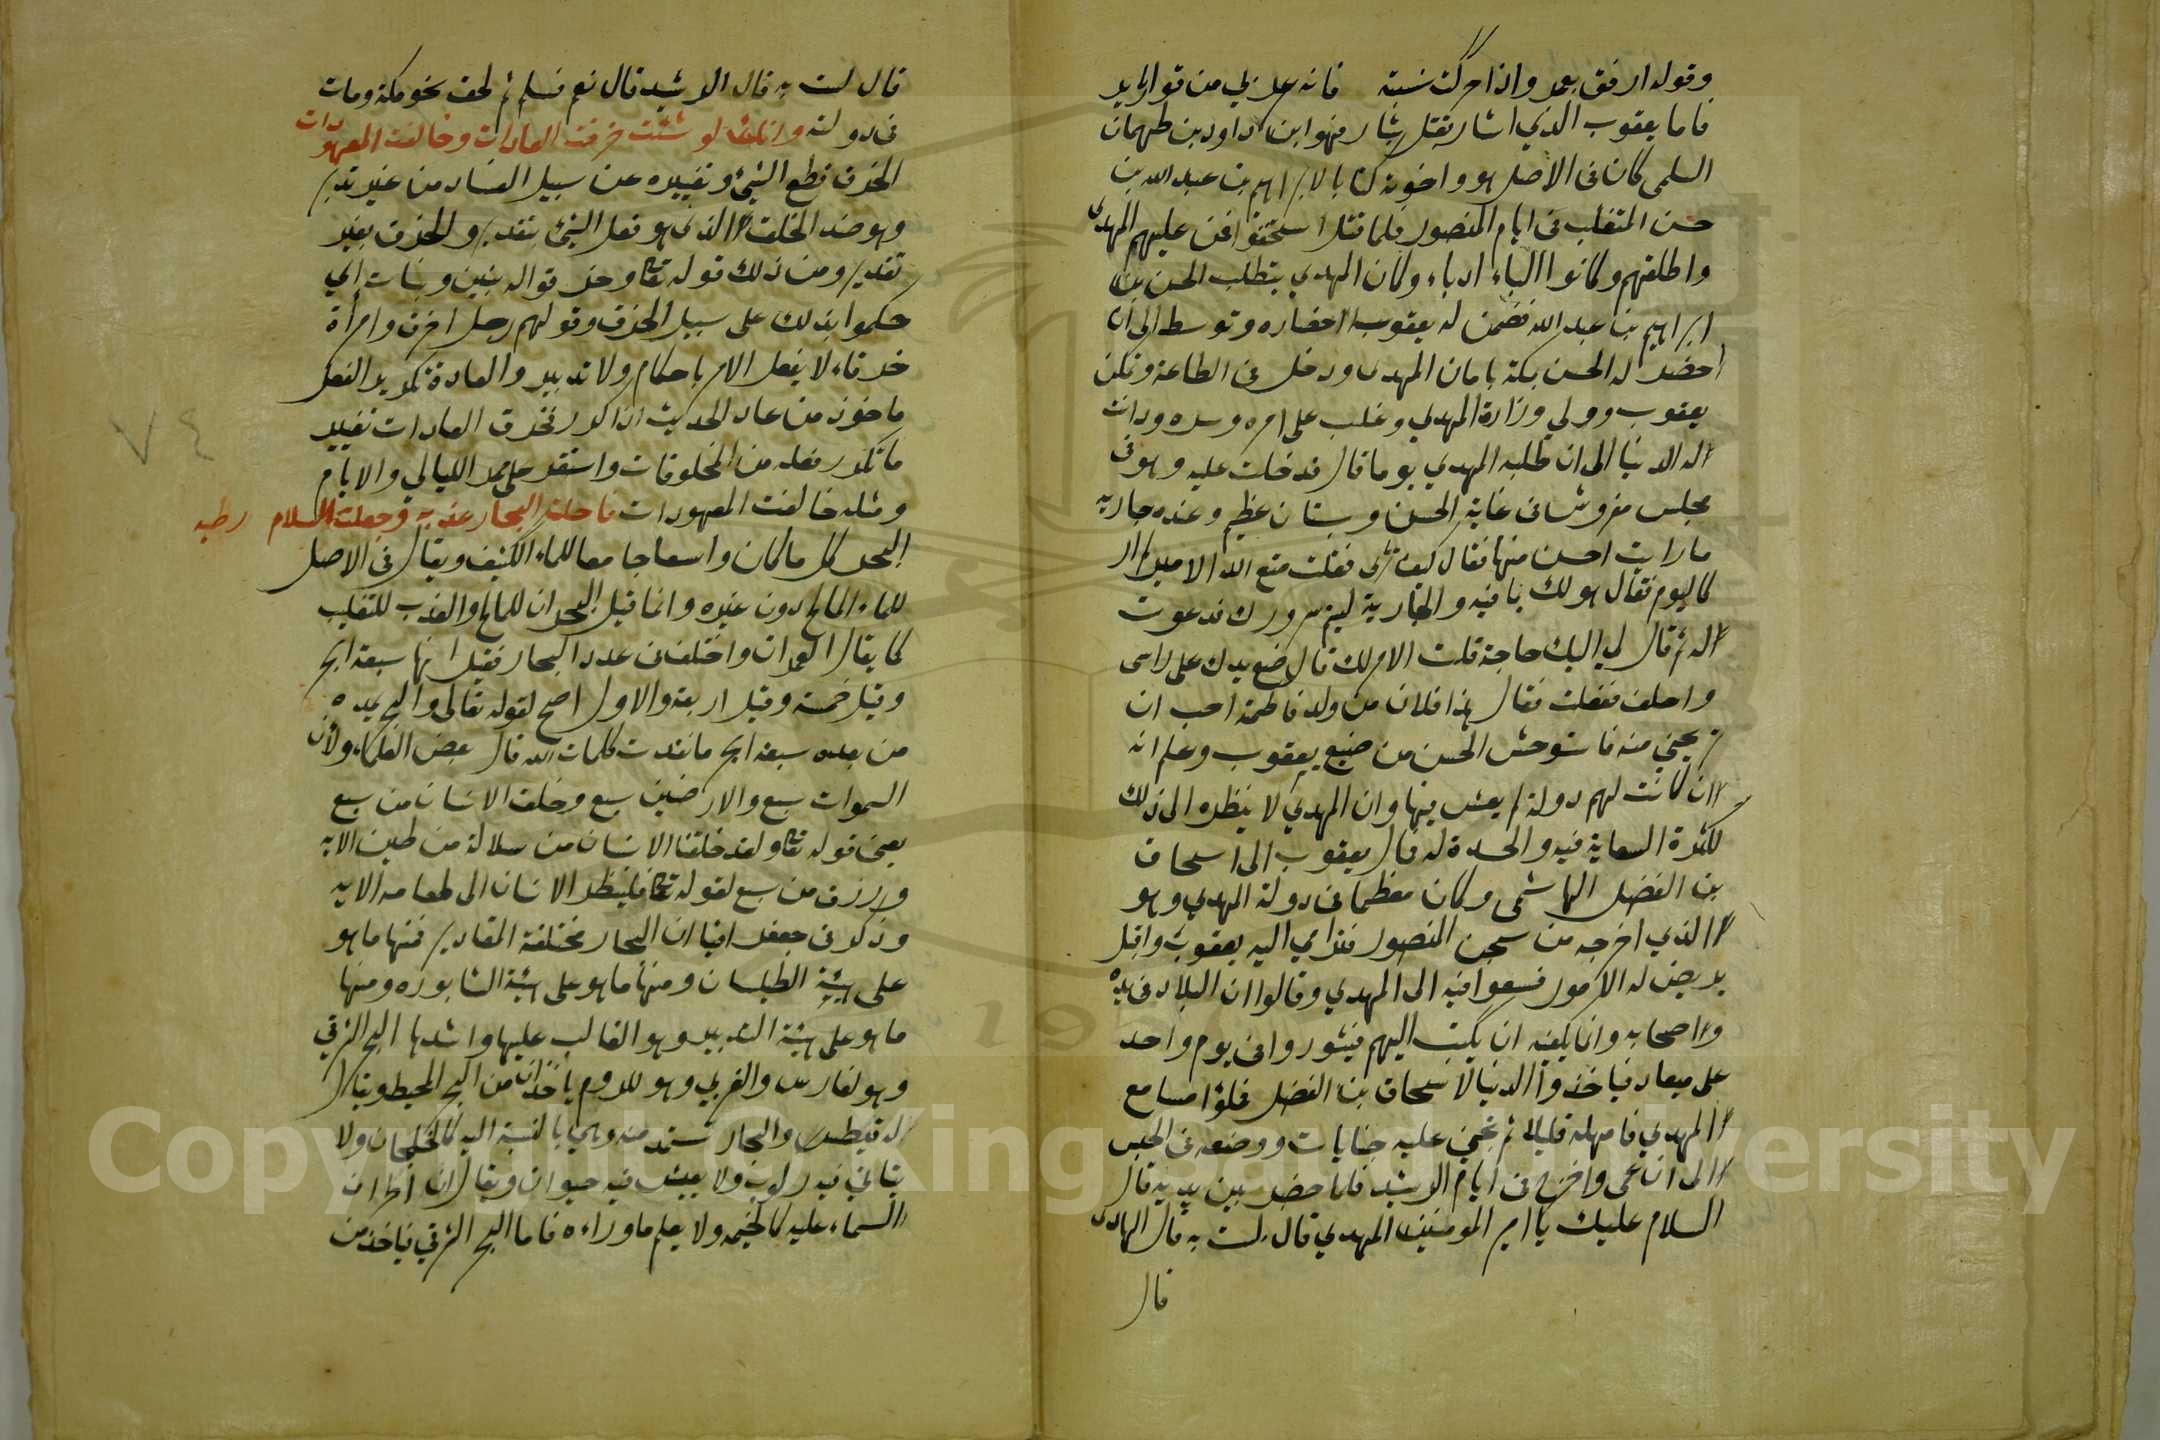 وقوله ارفق بعمرو اذا حركت نسبته فانه عربي من قوارير
فاما يعقوب الذي اشار بقتل بشار فهو ابن داود بن طهمان
السلمي كان في الاصل هو واخوته كتابا لابراهيم بن عبد الله بن
حسن المتغلب في ايام المنصور فلما قتل استخفوا فمن عليهم المهدي
واطلقهم وكانوا البّاء ادباء وكان المهدي يتطلب الحسن بن
ابراهيم بن عبد الله فضمن له يعقوب احضاره وتوسط الى ان
احضر له الحسن بمكة بامان المهدي ودخل في الطاعة وتمكن
يعقوب وولي وزارة المهدي وغلب على امره وسره ودانت
له الدنيا الى ان طلبه المهدي يوما قال فدخلت عليه وهو في
مجلس مفروش في غاية الحسن وبستان عظيم وعنده جاريه
ما رايت احسن منها فقال كيف ترى فقلت متع الله الامير لم ار
كاليوم فقال هو لك بما فيه والجارية ليتم سرورك فدعوت
له ثم قال لي اليك حاجة قلت الامر لك قال ضع يدك على راسي
واحلف ففعلت فقال هذا فلان من ولد فاطمة احب ان
تريحني منه فاستوحش الحسن من صنيع يعقوب وعلم انه
ان كانت لهم دولة لم يعش فيها وان المهدي لا ينظره الى ذلك
لكثرة السعاية فيه والحسدة له فمال يعقوب الى اسحاق
بن الفضل الهاشمي وكان معظما في دولة المهدي وهو
الذي اخرجه من سجن المنصور فتراي اليه يعقوب واقبل
يربض له الامور فسعوا فيه الى المهدي وقالوا ان البلاد في يده
واصحابه وانما يكفيه ان يكتب اليهم فيثوروا في يوم واحد
على ميعاد فياخذوا الدنيا لاسحاق بن الفضل فملؤا مسامع
المهدي فامهله قليلا ثم تجنى عليه جنايات ووضعه في الحبس
الى ان عمي واخرج في ايام الرشيد فلما حضر بين يديه قال
السلام عليك يا امير المومنين المهدي قال لست به قال الهادي
قال
قال لست به قال الرشيد قال نعم فسلم ثم لحق بنحو مكة ومات
في دولته وانك لو شئت خرقت العادات وخالفت المعهودات
الخرق قطع الشيء وتغييره على سبيل الفساد من غير تدبر
وهو ضد الخلق الذي هو فعل الشيء بتقدير والخرق بغير
تقدير ومن ذلك قوله تعالى وخرقوا له بنين وبنات اي
حكموا بذلك على سبيل الخرق وقولهم رجل اخرق وامرأة
خرقاء لا يفعل الامر باحكام ولا تدبير والعادة تكرير الفعل
ماخوذ من عاد الحديث اذا كرر فخرق العادات تغيير
ما تكرر فعله من المخلوقات واستقر على ممر الليالي والايام
ومثله خالفت المعهودات فاحلت البحار عذبه وجعلت السلام رطبه
البحر كل ما كان واسعا جامعا للماء الكثيف ويقال في الاصل
للماء المالح دون غيره وانما قيل البحران للمالح والعذب للتغليب
كما يقال العمران واختلف في عدد البحار فقيل انها سبعة ابحر
وقيل خمسة وقيل اربعة والاول اصح لقوله تعالى والبحر يمده
من بعده سبعة ابحر ما نفدت كلمات الله قال بعض العلماء ولان
السموات سبع والارضين سبع وخلق الانسان من سبع
يعني قوله تعالى ولقد خلقنا الانسان من سلالة من طين الايه
ورزق من سبع لقوله تعالى فلينظر الانسان الى طعامه الايه
وذكر في جغرافيا ان البحار مختلفة المقادير فمنها ما هو
على هيئة الطيلسان ومنها ما هو على هيئة الشابوره ومنها
ما هو على هيئة التدبير وهو الغالب عليها واشدها البحر الشرقي
وهو لفارس والغربي وهو للروم ياخذان من البحر المحيط ويقال
له قنيطس والبحار تستمد منه وهي بالنسبة اليه كالخلجان ولا
يتاتي فيه ركوب ولا يعيش فيه حيوان ويقال ان اطراف
السماء عليه كالخيمه ولا يعلم ما وراءه فاما البحر الشرقي فياخذ من
٧٤